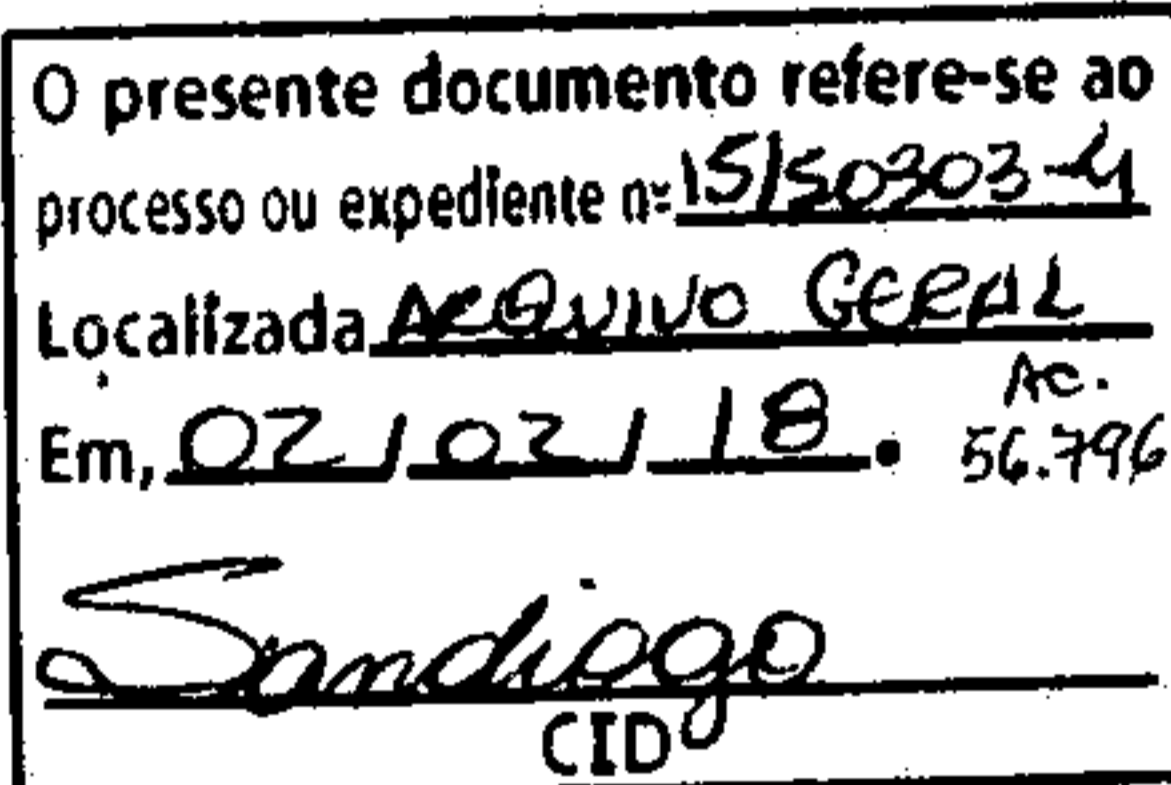 O presente documento refere-se ao
processo ou expediente nº 15/50303-4
Localizada ARQUIVO GERAL
Em, 02 / 02 / 18. Ac.
56.796
Sandiogo
CID